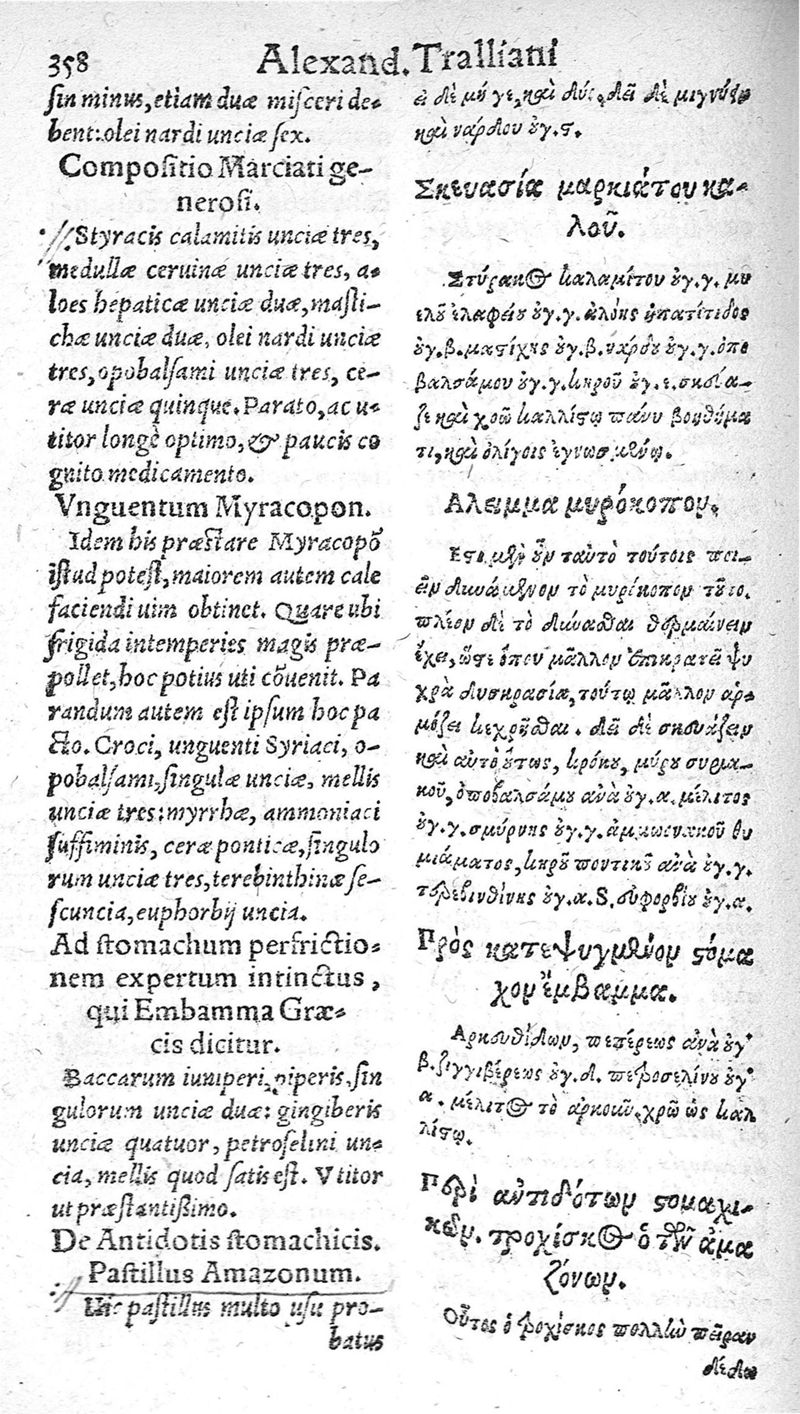 358
Alexand. Tralliani
sin minus, etiam duæ misceri de-
bent: olei nardi unciæ sex.
Compositio Marciati ge-
nerosi.
Styracis calamitis unciæ tres,
medullæ ceruinæ unciæ tres, a-
loes hepaticæ unciæ duæ, masti-
chæ unciæ duæ, olei nardi unciæ
tres, opobalsami unciæ tres, ce-
ræ unciæ quinque. Parato, ac u-
titor longè optimo, & paucis co
gnito medicamento.
Vnguentum Myracopon.
Idem his præstare Myracopō
istud potest, maiorem autem cale
faciendi uim obtinet. Quare ubi
frigida intemperies magis præ-
pollet, hoc potius uti cōuenit. Pa
randum autem est ipsum hoc pa
cto. Croci, unguenti Syriaci, o-
pobalsami, singulæ unciæ, mellis
unciæ tres: myrrhæ, ammoniaci
suffiminis, ceræ ponticæ, singulo
rum unciæ tres, terebinthinæ se-
scuncia, euphorbij uncia.
Ad stomachum perfrictio-
nem expertum intinctus,
qui Embamma Græ-
cis dicitur.
Baccarum iuniperi, piperis, sin
gulorum unciæ duæ: gingiberis
unciæ quatuor, petroselini un-
cia, mellis quod satis est. Vtitor
ut præstantißimo.
De Antidotis stomachicis.
Pastillus Amazonum.
Hic pastillus multo usu pro-
batus
εἰ δὲ μή γε, καὶ δύο. δεῖ δὲ μιγνύειν
καὶ νάρδου ȣγ. ϛ.
Σκευασία μαρκιάτου κα-
λοῦ.
Στύρακος καλαμίτου ȣγ. γ. μυ
ελοῦ ἐλαφείου ȣγ. γ. ἀλόης ἡπατίτιδος
ȣγ. β. μαϛίχης ȣγ. β. νάρδȣ ȣγ. γ. ὀπο
βαλσάμου ȣγ. γ. κηροῦ ȣγ. ε. σκεύα-
ζε καὶ χρῶ καλλίϛῳ πάνυ βοηθήμα
τι, καὶ ὀλίγοις ἐγνωσμένῳ.
Αλειμμα μυρόκοπου.
Ετι μὲν ȣν ταὐτὸ τούτοις ποι-
εῖν δυνάμενον τὸ μυρόκοπον τȣτο.
πλέον δὲ τὸ δύνασθαι θερμαίνειν
ἔχει, ὥϛε ὅπου μᾶλλον ἐπικρατεῖ ψυ
χρὰ δυσκρασία, τούτῳ μᾶλλον ἁρ-
μόζει κεχρῆσθαι. δεῖ δὲ σκευάζειν
καὶ αὐτὸ ȣτως, κρόκȣ, μύρȣ συρια-
κοῦ, ὀποβαλσάμȣ ἀνὰ ȣγ. α. μέλιτος
ȣγ. γ. σμύρνης ȣγ. γ. ἀμμωνιακοῦ θυ
μιάματος, κηρȣ ποντικȣ ἀνὰ ȣγ. γ.
τερεβινθίνης ȣγ. α. S. εὐφορβίȣ ȣγ. α.
Πρὸς κατεψυγμένον ϛόμα
χον ἔμβαμμα.
Αρκευθίδων, πεπέρεως ἀνὰ ȣγ.
β. ζιγγιβέρεως ȣγ. δ. πετροσελίνȣ ȣγ.
α. μέλιτος τὸ ἀρκοῦν. χρῶ ὡς καλ
λίϛῳ.
Περὶ ἀντιδότων ϛομαχι-
κῶν. τροχίσκος ὁ τῶν ἀμα
ζόνων.
Οὗτος ὁ τροχίσκος πολλὴν πεῖραν
δέδω